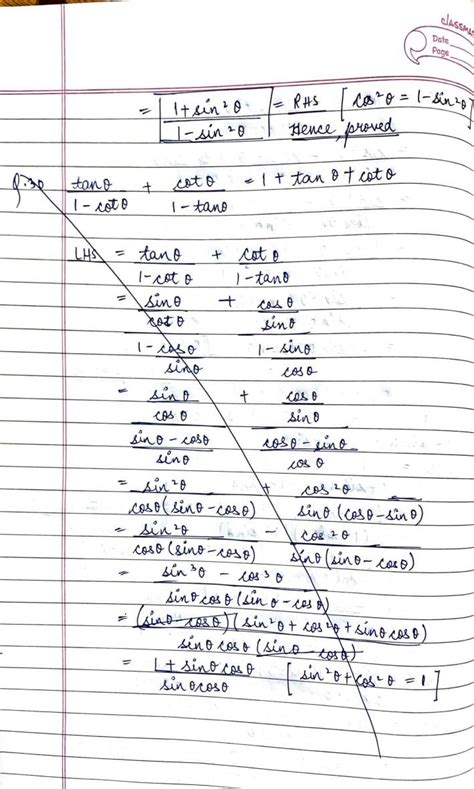 classmate
Date
Page
= 1+sin²θ / 1-sin²θ = RHS [cos²θ = 1-sin²θ]
Hence, proved
Q.30 tanθ / 1-cotθ + cotθ / 1-tanθ = 1 + tanθ + cotθ
LHS = tanθ / 1-cotθ + cotθ / 1-tanθ
= sinθ / cotθ / 1-cosθ / sinθ + cosθ / sinθ / 1-sinθ / cosθ
= sinθ / cosθ / sinθ-cosθ / sinθ + cosθ / sinθ / cosθ-sinθ / cosθ
= sin²θ / cosθ(sinθ-cosθ) + cos²θ / sinθ(cosθ-sinθ)
= sin²θ / cosθ(sinθ-cosθ) - cos²θ / sinθ(sinθ-cosθ)
= sin³θ - cos³θ / sinθcosθ(sinθ-cosθ)
= (sinθ-cosθ)(sin²θ+cos²θ+sinθcosθ) / sinθcosθ(sinθ-cosθ)
= 1+sinθcosθ / sinθcosθ [sin²θ+cos²θ = 1]